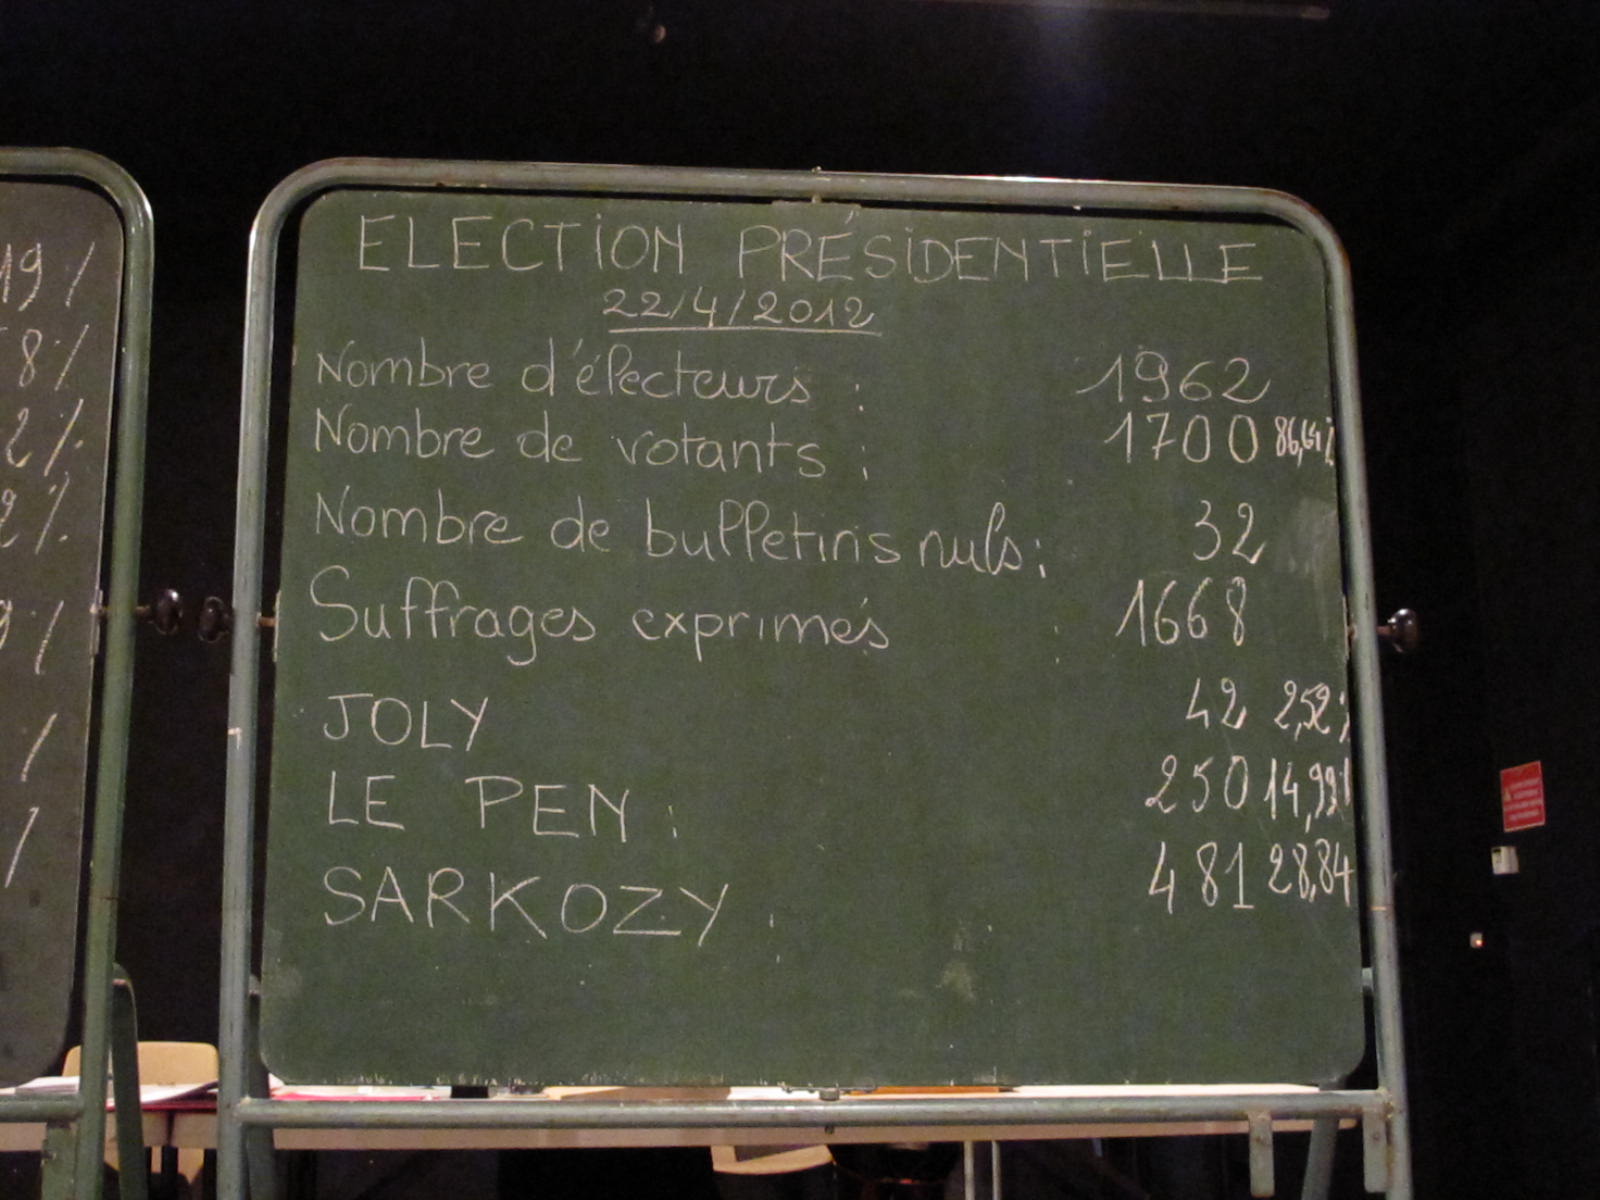 19%
8%
2%
2%
9%
%
%
ELECTION PRÉSIDENTIELLE
22/4/2012
Nombre d'électeurs : 1962
Nombre de votants : 1700 86,64%
Nombre de bulletins nuls : 32
Suffrages exprimés : 1668
JOLY 42 2,52%
LE PEN : 250 14,99%
SARKOZY : 481 28,84